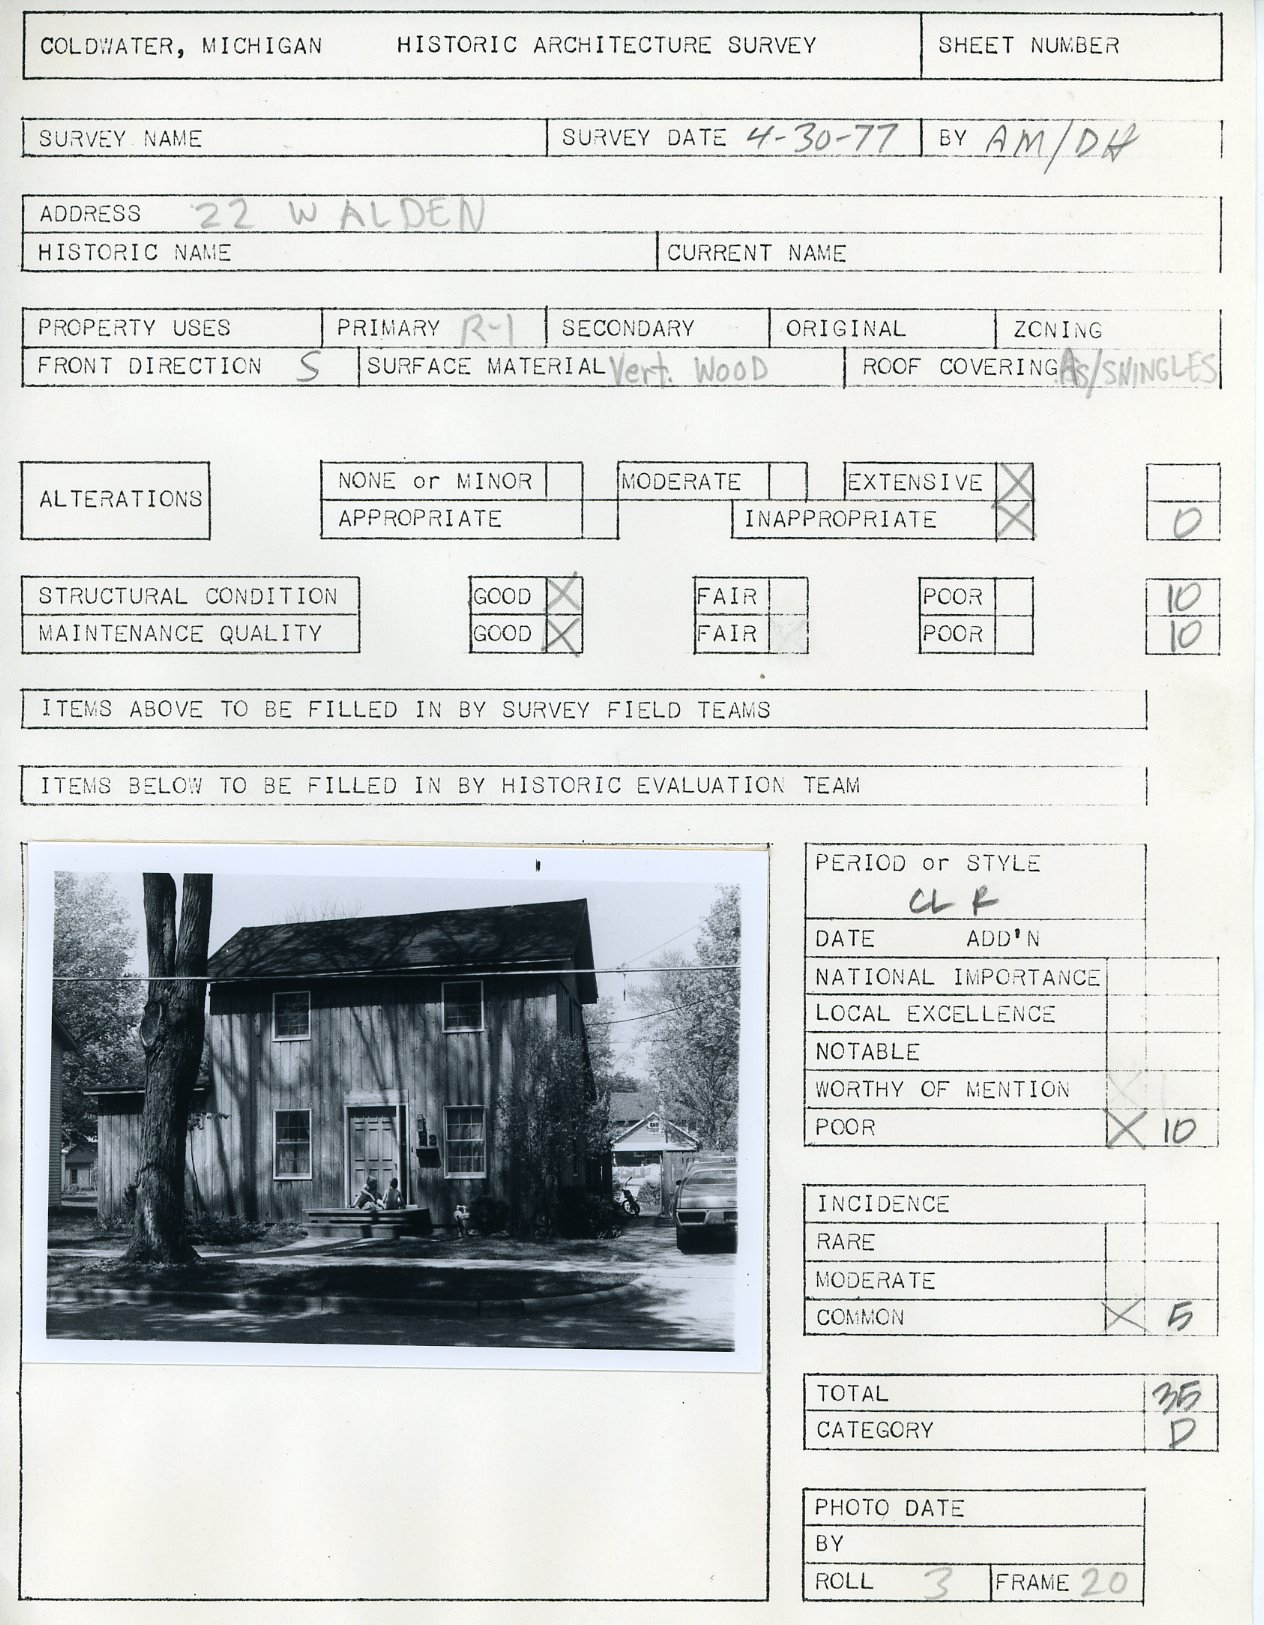 COLDWATER, MICHIGAN HISTORIC ARCHITECTURE SURVEY SHEET NUMBER
SURVEY NAME SURVEY DATE 4-30-77 BY AM/DH
ADDRESS 22 WALDEN
HISTORIC NAME CURRENT NAME
PROPERTY USES PRIMARY R-1 SECONDARY ORIGINAL ZONING
FRONT DIRECTION S SURFACE MATERIAL Vert. WOOD ROOF COVERING As/SHINGLES
ALTERATIONS
NONE or MINOR MODERATE EXTENSIVE X
APPROPRIATE INAPPROPRIATE X 0
STRUCTURAL CONDITION GOOD X FAIR POOR 10
MAINTENANCE QUALITY GOOD X FAIR POOR 10
ITEMS ABOVE TO BE FILLED IN BY SURVEY FIELD TEAMS
ITEMS BELOW TO BE FILLED IN BY HISTORIC EVALUATION TEAM
PERIOD or STYLE
CL R
DATE ADD'N
NATIONAL IMPORTANCE
LOCAL EXCELLENCE
NOTABLE
WORTHY OF MENTION
POOR X 10
INCIDENCE
RARE
MODERATE
COMMON X 5
TOTAL 35
CATEGORY D
PHOTO DATE
BY
ROLL 3 FRAME 20